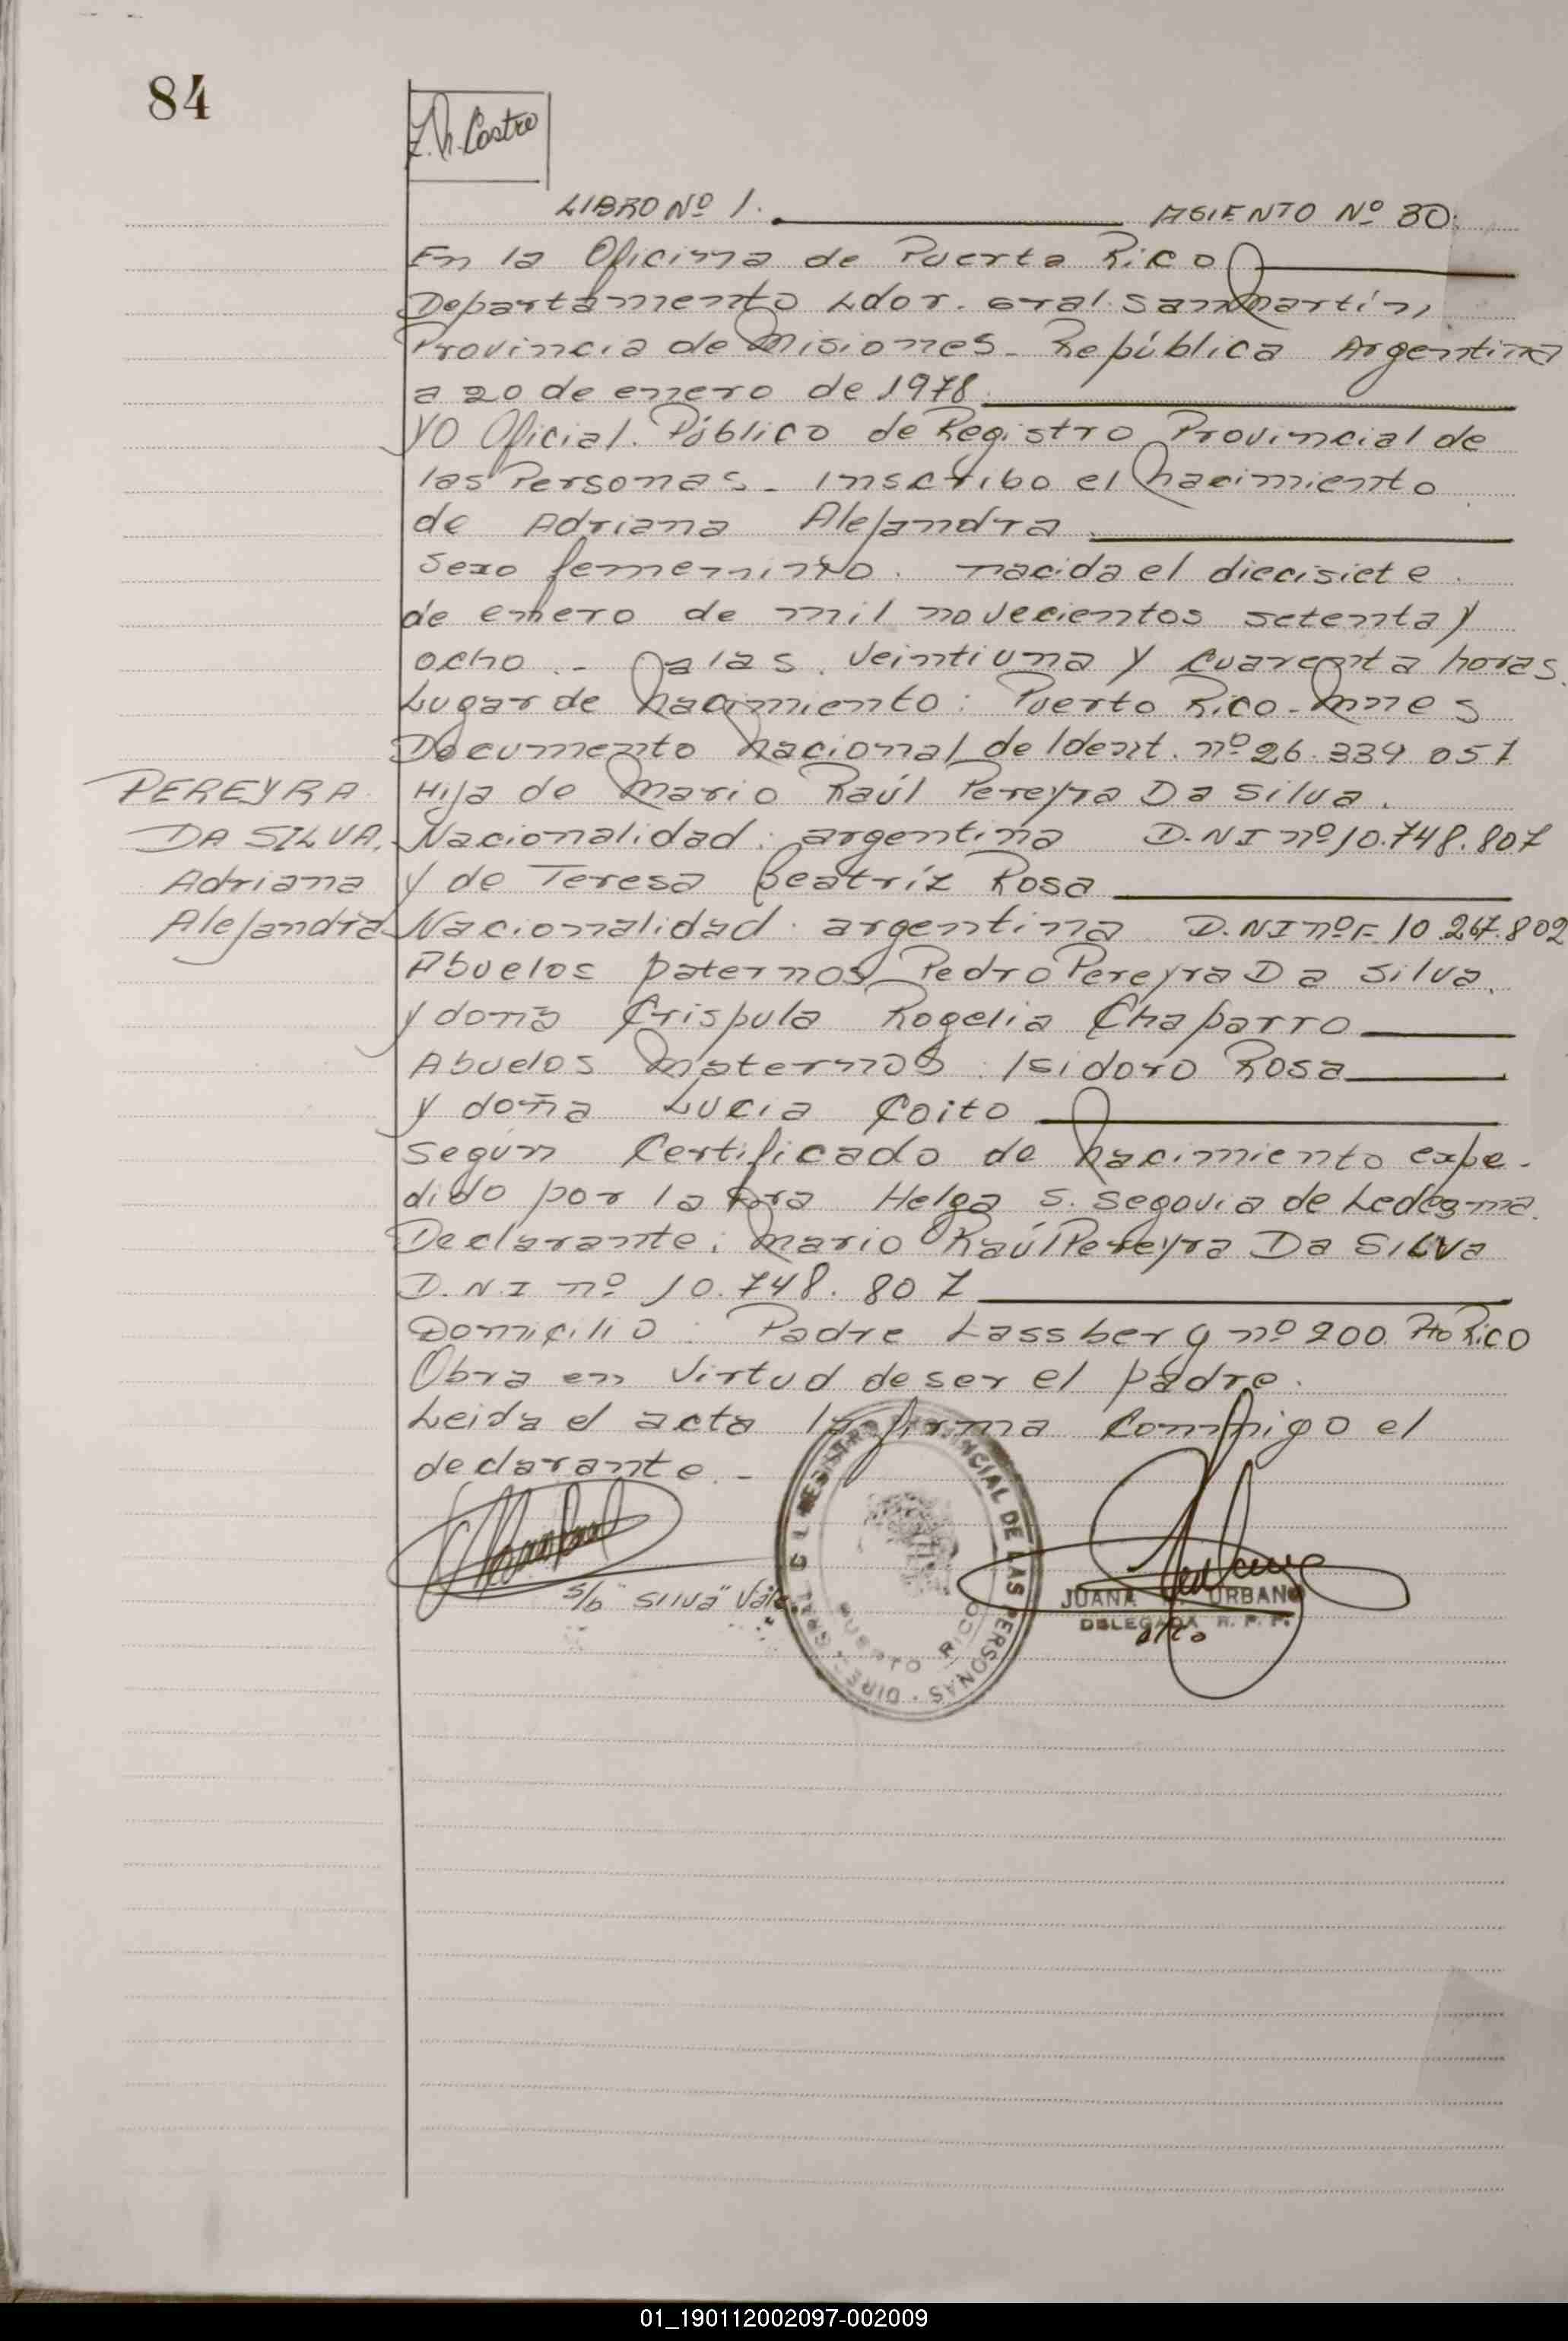 84
Z. N. Castro
LIBRO Nº 1. ASIENTO Nº 80.
En la Oficina de Puerto Rico
Departamento Ldor. Gral. San Martín,
Provincia de Misiones - República Argentina
a 20 de enero de 1978
YO Oficial. Público de Registro Provincial de
las Personas - Inscribo el Nacimiento
de Adriana Alejandra
Sexo femenino. nacida el diecisiete
de enero de mil novecientos setenta y
ocho. - a las veintiuna y cuarenta horas.
Lugar de Nacimiento: Puerto Rico - Mnes
Documento Nacional de Ident. nº 26.339.057
PEREYRA Hija de Mario Raúl Pereyra Da Silva.
DA SILVA, Nacionalidad: argentina D.N.I nº 10.748.807
Adriana y de Teresa Beatríz Rosa
Alejandra Nacionalidad argentina D.NI nº F. 10 267.802
Abuelos paternos Pedro Pereyra Da Silva.
y doña Crispula Rogelia Chaparro
Abuelos Maternos: Isidoro Rosa
y doña Lucia Coito
Según Certificado de Nacimiento expe-
dido por la Dra Helga S. Segovia de Ledesma.
Declarante: Mario Raúl Pereyra Da Silva
D.N.I nº 10.748.807
Domicilio: Padre Lassberg nº 200. Pto Rico
Obra en Virtud de ser el padre.
Leida el acta la firma Conmigo el
declarante. -
S/b "Silva" Vale.
REGISTRO PROVINCIAL DE LAS PERSONAS - DIRE
PUERTO RICO
JUANA URBANO
DELEGADA R. P. P.
01_190112002097-002009